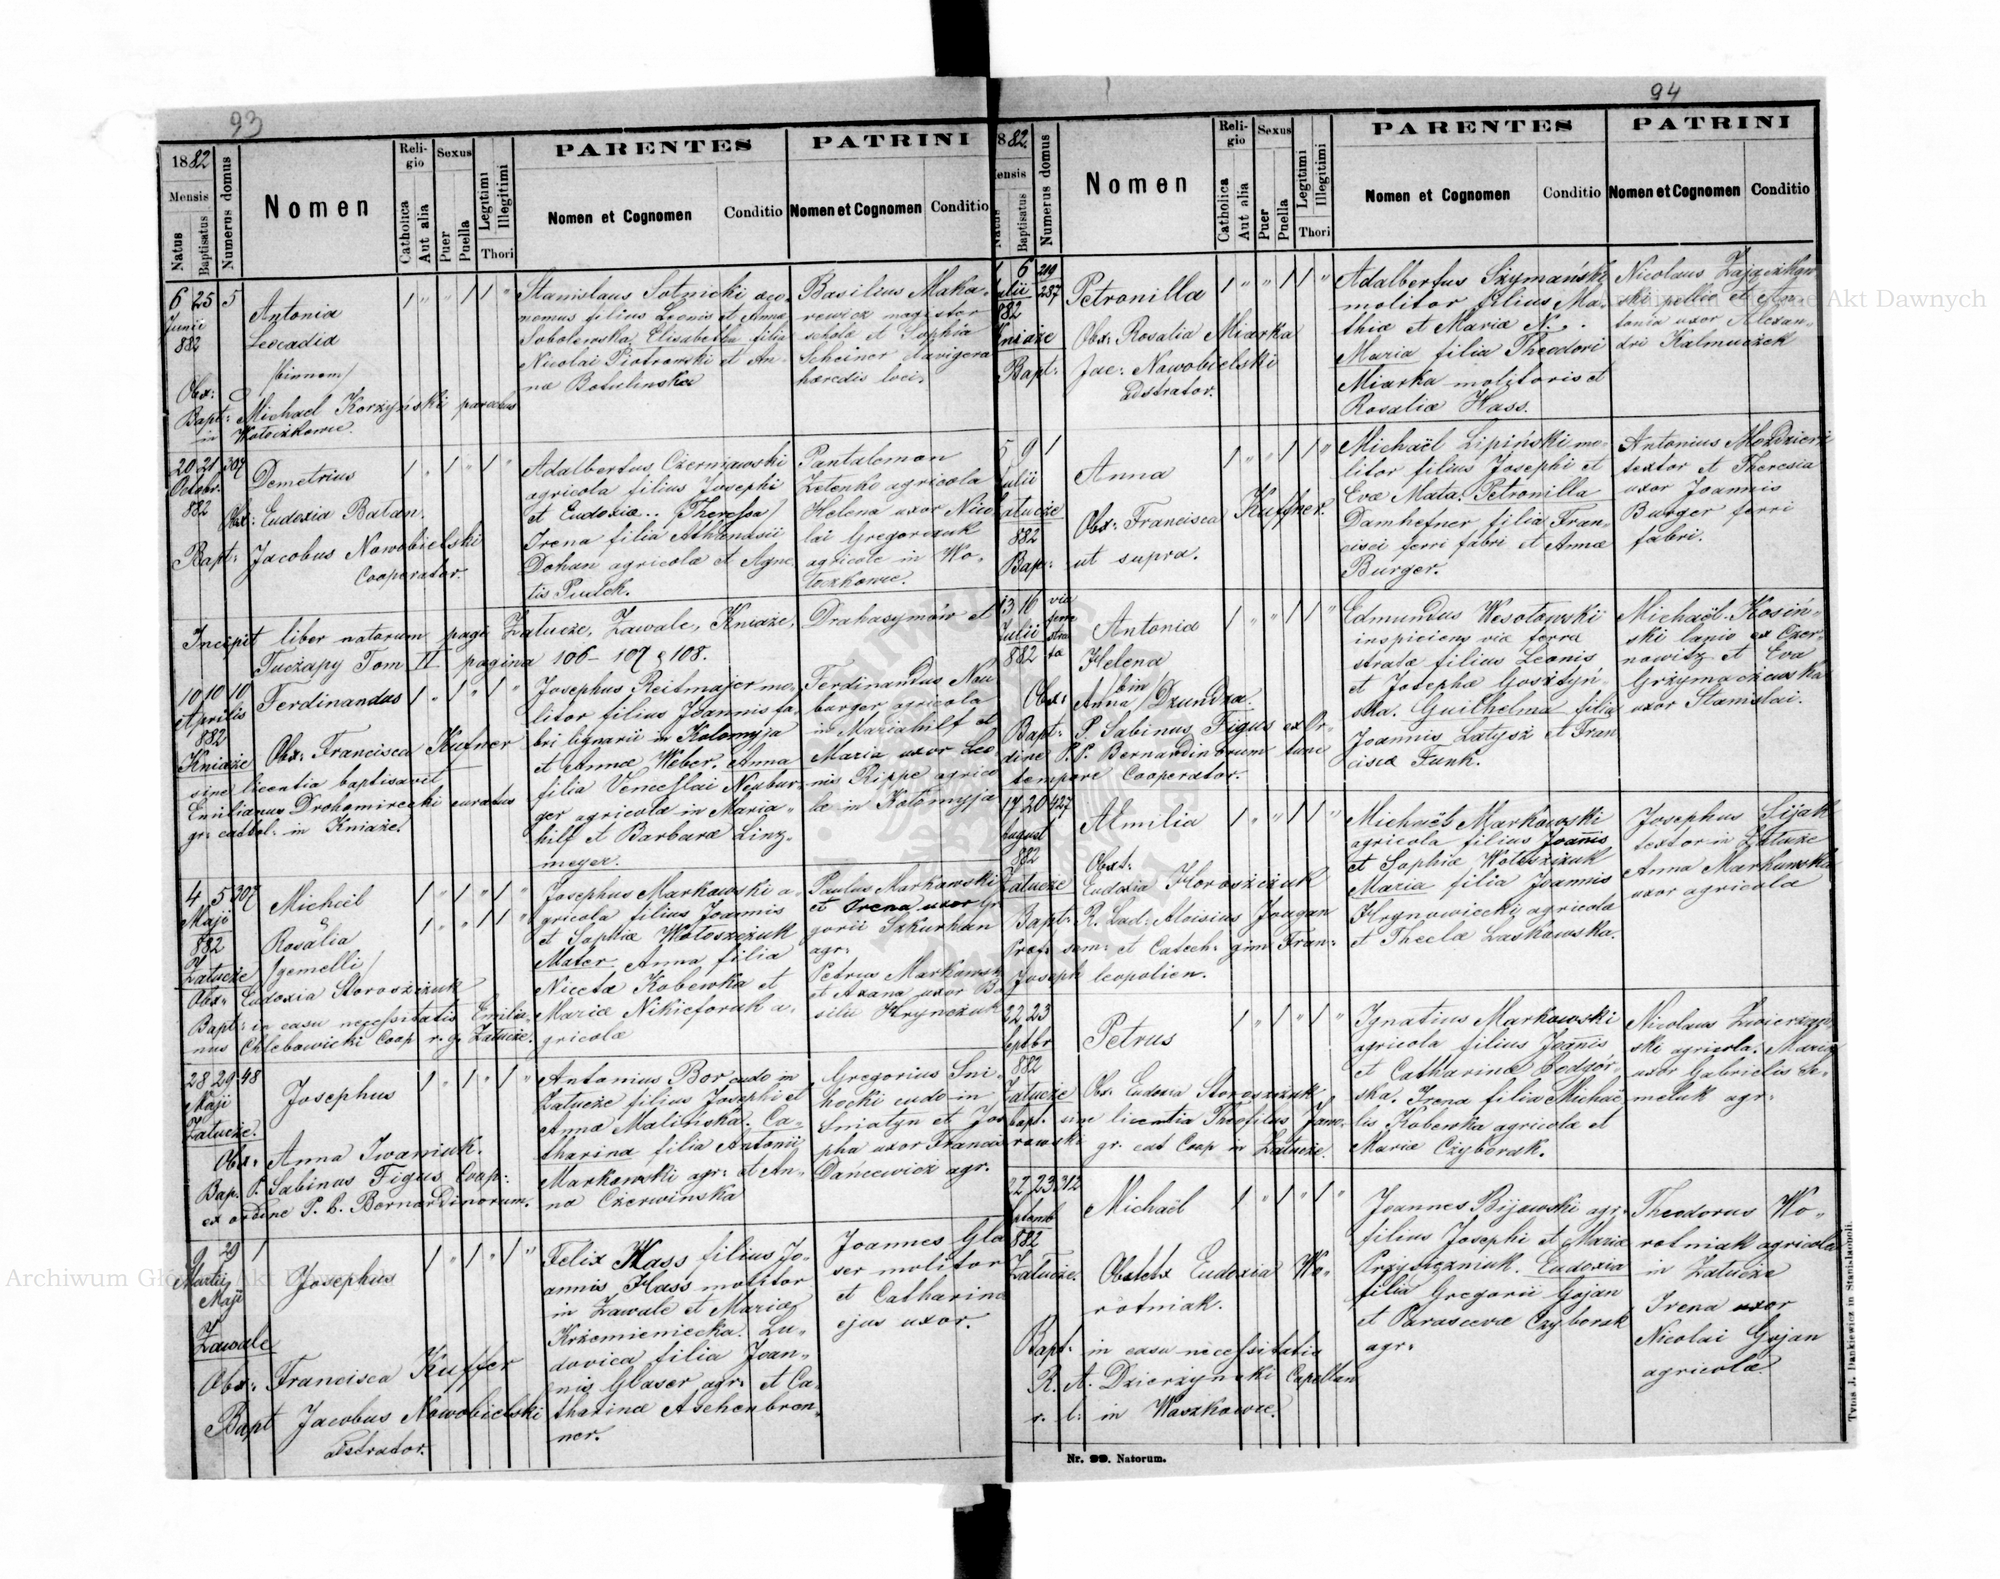 93
1882
Mensis
Natus
Baptisatus
Numerus domus
Nomen
Religio
Catholica
Aut alia
Sexus
Puer
Puella
Legitimi
Illegitimi
Thori
PARENTES
Nomen et Cognomen
Conditio
PATRINI
Nomen et Cognomen
Conditio
6 25 5
Junii
882
Antonia
Leocadia
/binom/
Obx:
Bapt: Michael Korzyński parochus
in Wołoczkowce.
Stanislaus Sotnicki oeco-
nomus filius Leonis et Annæ
Sobolewska, Elisabetha filia
Nicolai Piotrowski et An-
næ Botulinska
Basilius Maka-
rewicz magister
scholæ et Sophia
Scheiner clavigera
hæredis loci.
20 21 307
Octobr.
882
Demetrius
Obx: Eudoxia Batan.
Bapt: Jacobus Nowobielski
Cooperator.
Adalbertus Czerniawski
agricola filius Josephi
et Eudoxiæ.. (Theressa)
Irena filia Athanasii
Dohan agricolæ et Agne-
tis Pudek.
Pantalemon
Zelenko agricola
Helena uxor Nico
lai Gregorczuk
agricolæ in Wo-
łoczkowce.
Incipit liber natorum pagi Załucze, Zawale, Kniaże, Drahasymów et
Tuczapy Tom II pagina 106 – 107 & 108.
10 10 10
Aprilis
882
Kniaże
Ferdinandus
Obx: Francisca Kufner
sine licentia baptisavit
Emilianus Drohomirecki curatus
gr: cathol: in Kniaże.
Josephus Reitmajer mo-
litor filius Joannis fa-
bri lignarii in Kołomyja
et Annæ Weber. Anna
filia Venceslai Neubur-
ger agricolæ in Maria-
hilf et Barbaræ Linz-
meyer.
Ferdinandus Neu
burger agricola
in Mariahilf et
Maria uxor Leo-
nis Rippe agrico
læ in Kołomyja
4 5 307
Maji
882
Załucze
Michæl
&
Rosalia
/gemelli/
Obx: Eudoxia Storoszczuk
Bapt: in casu necessitatis Emilia-
nus Chlebowicki Coop r. g. Załucze.
Josephus Markowski a-
gricola filius Joannis
et Sophiæ Wołoszczuk
Mater Anna filia
Nicetæ Kobewka et
Mariæ Nikieforuk a-
gricolæ
Paulus Markowski
et Irena uxor Gr
gorii Sakurhan
agr:
Petrus Markowsk
et Axana uxor Ba
silii Hrynczuk
28 29 48
Maji
Załucze.
Josephus
Obx: Anna Iwaniuk.
Bap. P. Sabinus Figus Coop:
ex ordine P. P. Bernardinorum.
Antonius Bor cudo in
Załucze filius Josephi et
Annæ Malińska. Ca-
tharina filia Antonii
Markowski agr: et An-
næ Czerwińska
Gregorius Sni-
hocki cudo in
Sniatyn et Jos
pha uxor Francis
Dańcewicz agr.
9 29 1
Martii
Maji
Zawale
Josephus
Obx: Francisca Kuffer
Bapt Jacobus Nowobielski
adstrator.
Felix Hass filius Jo-
annis Hass molitor
in Zawale et Mariæ
Krzemieniecka. Lu-
dovica filia Joan-
nis Glaser agr: et Ca-
tharinæ Aschenbren-
ner.
Joannes Gla
ser molitor
et Catharina
ejus uxor.
94
882
ensis
Natus
Baptisatus
Numerus domus
Nomen
Religio
Catholica
Aut alia
Sexus
Puer
Puella
Legitimi
Illegitimi
Thori
PARENTES
Nomen et Cognomen
Conditio
PATRINI
Nomen et Cognomen
Conditio
1 6 219
Julii 287
882
Kniaże
Petronilla
Obx: Rosalia Miarka
Bapt: Jac: Nowobielski
adstrator.
Adalbertus Szymański
molitor filius Ma-
thiæ et Mariæ N.
Maria filia Theodori
Miarka molitoris et
Rosaliæ Hass.
Nicolaus Zajączkow
ski pellio et An-
tonia uxor Alexan-
dri Kalmuczek
5 9 1
Julii
Załucze
882
Anna
Obx: Francisca Kuffner.
Bap: ut supra.
Michaël Lipiński mo-
litor filius Josephi et
Evæ Mata. Petronilla
Damhefner filia Fran-
cisci ferri fabri et Annæ
Burger.
Antonius Możdzierz
textor et Theresia
uxor Joannis
Burger ferri
fabri.
13 16 via
Julii ferre
882 stra
ta
Antonia
Helena
/bin/
Obx: Anna Dzundza.
Bapt: P. Sabinus Figus ex Or-
dine P. P. Bernardinorum tunc
tempore Cooperator.
Edmundus Wesołowski
inspiciens viæ ferro
stratæ filius Leonis
et Josephæ Gosztyń-
ska. Guilhelma filia
Joannis Łatysz et Fran
ciscæ Funk.
Michaël Kosiń-
ski lapic ex Czer-
nowitz et Eva
Grzymaczewska
uxor Stanislai.
17 20 427
August
882
Załucze
Æmilia
Obxt:
Eudoxia Horoszczuk
Bapt: R. Lad: Aloisius Jougan
Præf: sem: et Catech: gim Fran:
Joseph leopolien.
Michaël Markowski
agricola filius Joannis
et Sophiæ Wołoszczuk
Maria filia Joannis
Hrynowiecki agricolæ
et Theclæ Laskowska.
Josephus Sijak
textor in Załucze
Anna Markowska
uxor agricolæ
22 23
Septbr
882
Załucze
Petrus
Obx: Eudoxia Storoszczuk
bapt. sine licentia Theofilus Jawo-
rowski gr. cat Coop in Załucze.
Ignatius Markowski
agricola filius Joannis
et Catharinæ Podgór-
ska. Irena filia Michae
lis Kobewka agricolæ et
Mariæ Czyborak.
Nicolaus Zwierzyń-
ski agricola. Maria
uxor Gabrielis Se-
meluk agr:
22 23 312
Septemb
882
Załucze.
Michaël
Obstetx Eudoxia Wo-
rotniak.
Bapt: in casu necessitatis
R. A. Dzierzyński Capellan
r. l: in Waszkowce.
Joannes Bijowski agr:
filius Josephi et Mariæ
Przystaczniuk. Eudoxia
filia Gregorii Gojan
et Parascevæ Czyborak
agr:
Theodorus Wo-
rotniak agricola
in Załucze
Irena uxor
Nicolai Gojan
agricolæ
Nr. 99. Natorum.
Typus J. Dankiewicz in Stanislaopoli.
Archiwum Główne Akt Dawnych
Archiwum Główne Akt Dawnych